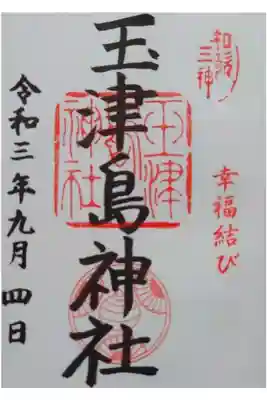 和歌
三神
幸福結び
玉津島神社
玉津
島神社
令和三年九月四日